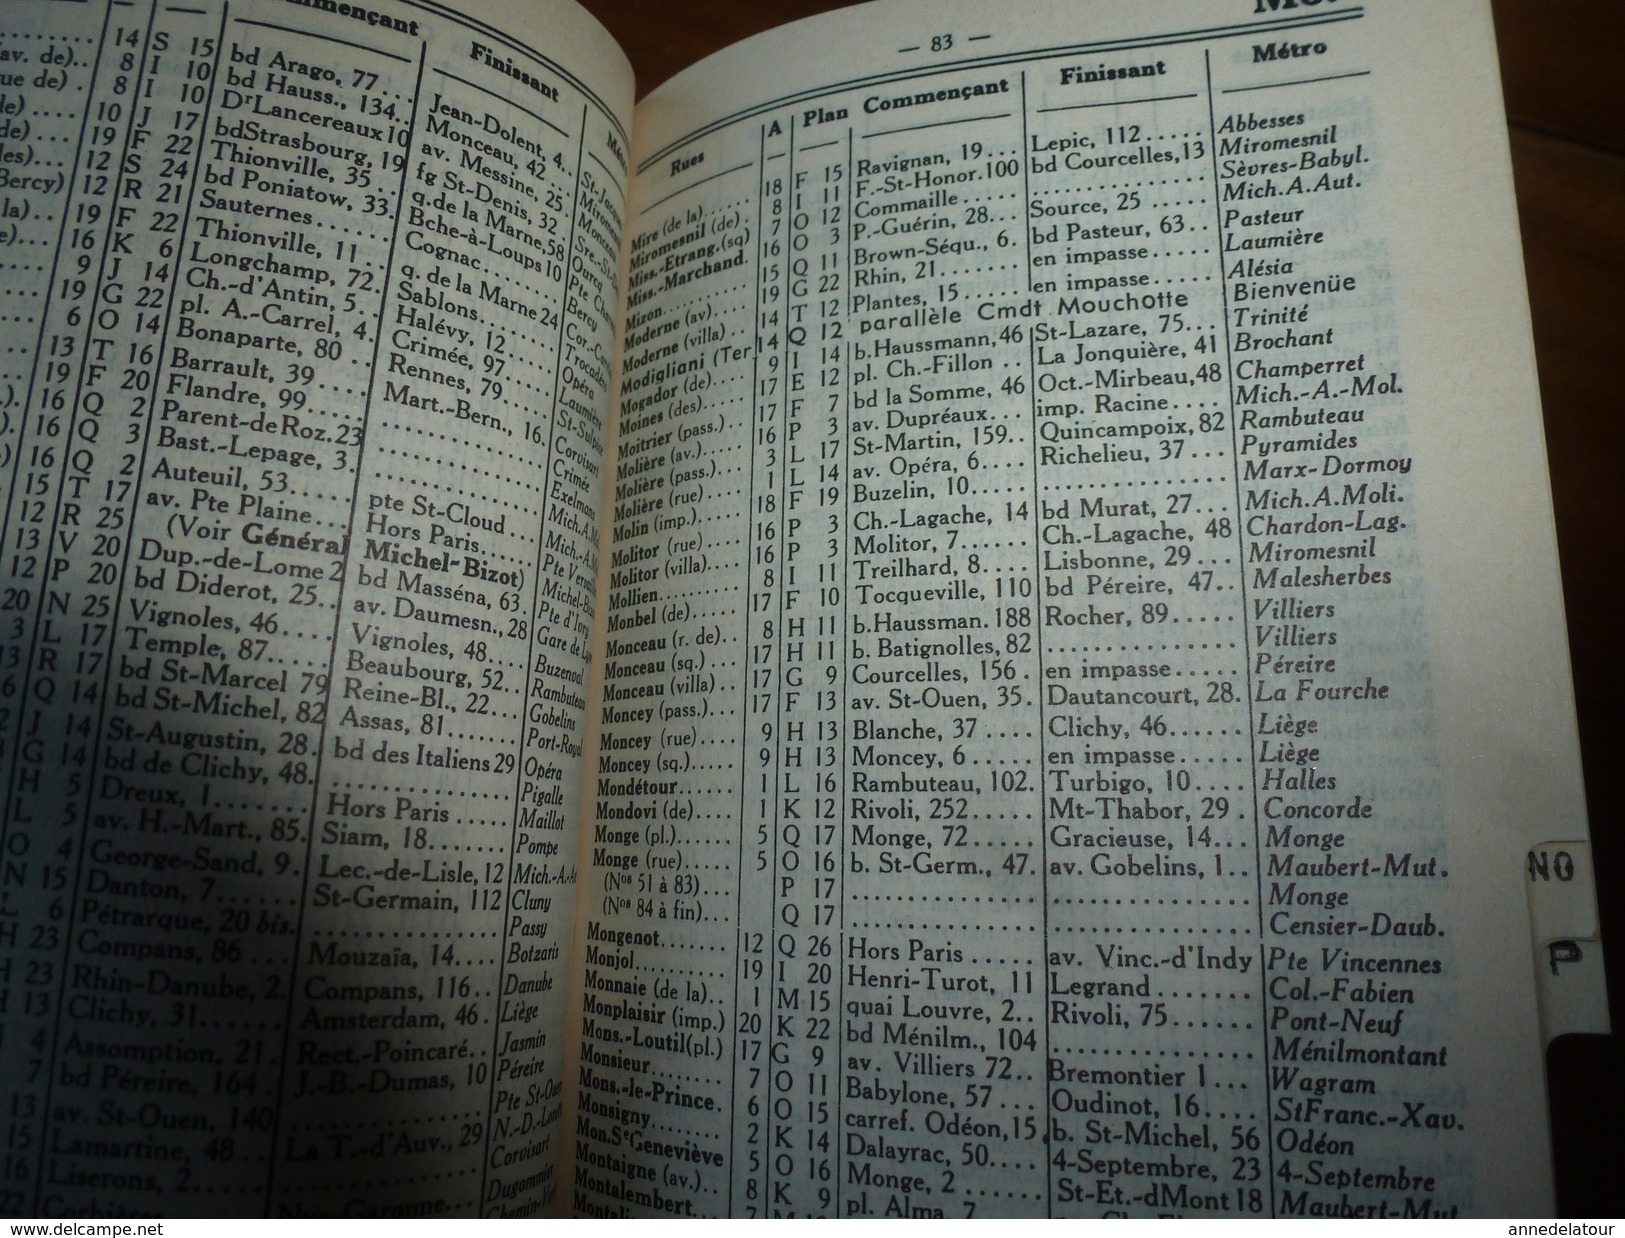 Commençant Finissant
14 S 15 bd Arago, 77... Jean-Dolent, 4..
av. de).. 8 I 10 bd Hauss., 134.. Monceau, 42...
ue de) . 8 I 10 Dr Lancereaux 10 av. Messine, 25.
10 J 17 bd Strasbourg, 19 fg St-Denis, 32.
19 F 22 Thionville, 35.. q. de la Marne, 58
12 S 24 bd Poniatow, 33. Bche-à-Loups 10
Bercy) 12 R 21 Sauternes...... Cognac......
la).. 19 F 22 Thionville, 11.. q. de la Marne 24
16 K 6 Longchamp, 72. Sablons......
9 J 14 Ch.-d'Antin, 5.. Halévy, 12....
19 G 22 pl. A.-Carrel, 4. Crimée, 97....
6 O 14 Bonaparte, 80 .. Rennes, 79....
13 T 16 Barrault, 39.... Mart.-Bern., 16.
19 F 20 Flandre, 99.....
16 Q 2 Parent-de Roz. 23
16 Q 3 Bast.-Lepage, 3.
16 Q 2 Auteuil, 53..... pte St-Cloud...
15 T 17 av. Pte Plaine... Hors Paris.....
12 R 25 (Voir Général Michel-Bizot)
13 V 20 Dup.-de-Lome 2 bd Masséna, 63.
12 P 20 bd Diderot, 25.. av. Daumesn., 28
20 N 25 Vignoles, 46.... Vignoles, 48.... Buzenval
3 L 17 Temple, 87..... Beaubourg, 52.. Rambuteau
13 R 17 bd St-Marcel 79 Reine-Bl., 22... Gobelins
6 Q 14 bd St-Michel, 82 Assas, 81....... Port-Royal
2 J 14 St-Augustin, 28. bd des Italiens 29 Opéra
G 14 bd de Clichy, 48. Pigalle
H 5 Dreux, 1....... Hors Paris ..... Maillot
L 5 av. H.-Mart., 85. Siam, 18....... Pompe
O 4 George-Sand, 9. Lec.-de-Lisle, 12
N 15 Danton, 7...... St-Germain, 112 Cluny
L 6 Pétrarque, 20 bis. Passy
H 23 Compans, 86 ... Mouzaïa, 14.... Botzaris
H 23 Rhin-Danube, 2. Compans, 116.. Danube
H 13 Clichy, 31...... Amsterdam, 46. Liège
4 Assomption, 21. Rect.-Poincaré.. Jasmin
7 bd Péreire, 164. J.-B.-Dumas, 10 Péreire
13 av. St-Ouen, 140
15 Lamartine, 48.. La T.-d'Auv., 29 N.-D.-Lorette
16 Liserons, 2..... Corvisart
22 Corbières
— 83 —
Rues A Plan Commençant Finissant Métro
Mire (de la)...... 18 F 15 Ravignan, 19... Lepic, 112..... Abbesses
Miromesnil (de). 8 I 11 F.-St-Honor. 100 bd Courcelles, 13 Miromesnil
Miss.-Etrang. (sq) 7 O 12 Commaille...... Sèvres-Babyl.
Miss.-Marchand. 16 O 3 P.-Guérin, 28... Source, 25 ..... Mich.A.Aut.
Mizon.......... 15 Q 11 Brown-Séqu., 6. bd Pasteur, 63.. Pasteur
Moderne (av).... 19 G 22 Rhin, 21....... en impasse..... Laumière
Moderne (villa).. 14 T 12 Plantes, 15..... en impasse..... Alésia
Modigliani (Ter 14 Q 12 parallèle Cmdt Mouchotte Bienvenüe
Mogador (de).... 9 I 14 b. Haussmann, 46 St-Lazare, 75... Trinité
Moines (des).... 17 E 12 pl. Ch.-Fillon .. La Jonquière, 41 Brochant
Moitrier (pass.).. 17 F 7 bd la Somme, 46 Oct.-Mirbeau, 48 Champerret
Molière (av.).... 16 P 3 av. Dupréaux... imp. Racine.... Mich.-A.-Mol.
Molière (pass.).. 3 L 17 St-Martin, 159.. Quincampoix, 82 Rambuteau
Molière (rue).... 1 L 14 av. Opéra, 6.... Richelieu, 37... Pyramides
Molin (imp.).... 18 F 19 Buzelin, 10...... Marx-Dormoy
Molitor (rue).... 16 P 3 Ch.-Lagache, 14 bd Murat, 27... Mich.A.Moli.
Molitor (villa).... 16 P 3 Molitor, 7...... Ch.-Lagache, 48 Chardon-Lag.
Mollien.......... 8 I 11 Treilhard, 8.... Lisbonne, 29... Miromesnil
Monbel (de).... 17 F 10 Tocqueville, 110 bd Péreire, 47.. Malesherbes
Monceau (r. de).. 8 H 11 b. Haussman. 188 Rocher, 89..... Villiers
Monceau (sq.).... 17 H 11 b. Batignolles, 82 Villiers
Monceau (villa).. 17 G 9 Courcelles, 156 . en impasse..... Péreire
Moncey (pass.)... 17 F 13 av. St-Ouen, 35. Dautancourt, 28. La Fourche
Moncey (rue).... 9 H 13 Blanche, 37 .... Clichy, 46...... Liège
Moncey (sq.)..... 9 H 13 Moncey, 6 ..... en impasse..... Liège
Mondétour...... 1 L 16 Rambuteau, 102. Turbigo, 10.... Halles
Mondovi (de).... 1 K 12 Rivoli, 252..... Mt-Thabor, 29 . Concorde
Monge (pl.)..... 5 Q 17 Monge, 72..... Gracieuse, 14... Monge
Monge (rue).... 5 O 16 b. St-Germ., 47. av. Gobelins, 1.. Maubert-Mut.
(Nos 51 à 83)... P 17 Monge
(Nos 84 à fin)... Q 17 Censier-Daub.
Mongenot....... 12 Q 26 Hors Paris ..... av. Vinc.-d'Indy Pte Vincennes
Monjol.......... 19 I 20 Henri-Turot, 11 Legrand....... Col.-Fabien
Monnaie (de la).. 1 M 15 quai Louvre, 2.. Rivoli, 75...... Pont-Neuf
Monplaisir (imp.) 20 K 22 bd Ménilm., 104 Ménilmontant
Mons.-Loutil(pl.) 17 G 9 av. Villiers 72.. Bremontier 1... Wagram
Monsieur........ 7 O 11 Babylone, 57... Oudinot, 16.... St Franc.-Xav.
Mons.-le-Prince. 6 O 15 carref. Odéon, 15. b. St-Michel, 56 Odéon
Monsigny........ 2 K 14 Dalayrac, 50.... 4-Septembre, 23 4-Septembre
Mon. Se Geneviève 5 O 16 Monge, 2 ...... St-Et.-dMont 18 Maubert-Mut
Montaigne (av.).. 8 K 9 pl. Alma, 7
Montalembert.
NO
P
www.delcampe.net
annedelatour